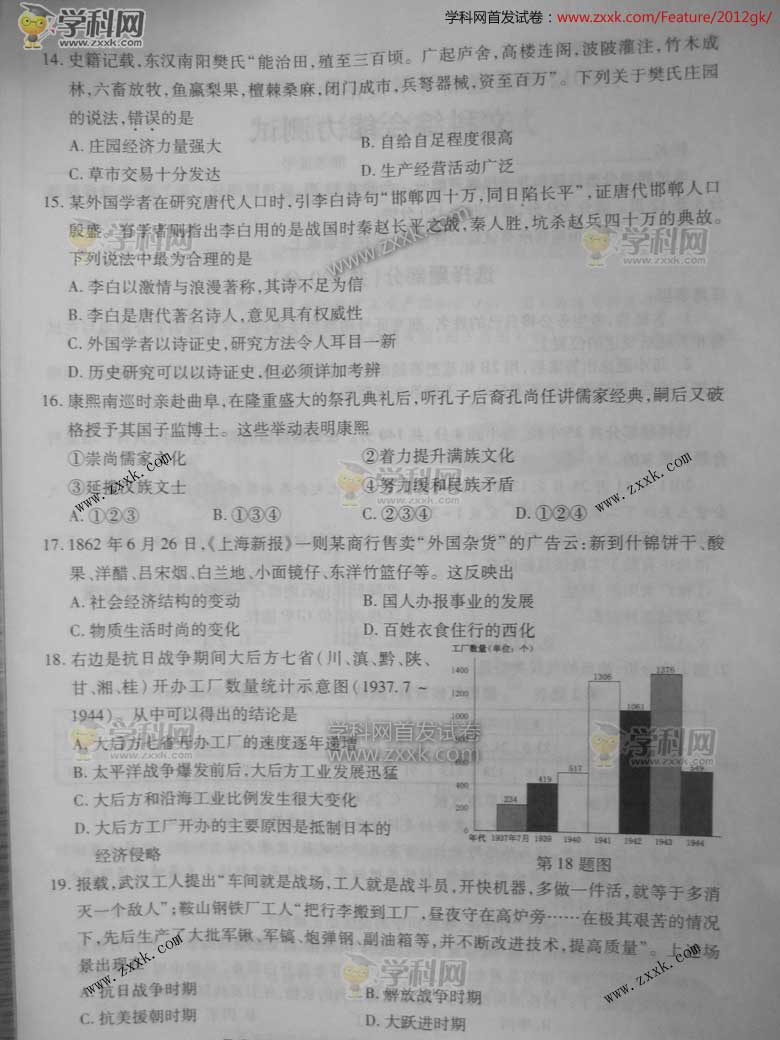 学科网首发试卷：www.zxxk.com/Feature/2012gk/
14. 史籍记载,东汉南阳樊氏“能治田,殖至三百顷。广起庐舍,高楼连阁,波陂灌注,竹木成
林,六畜放牧,鱼蠃梨果,檀棘桑麻,闭门成市,兵弩器械,资至百万”。下列关于樊氏庄园
的说法,错误的是
A. 庄园经济力量强大 B. 自给自足程度很高
C. 草市交易十分发达 D. 生产经营活动广泛
15. 某外国学者在研究唐代人口时,引李白诗句“邯郸四十万,同日陷长平”,证唐代邯郸人口
殷盛。有学者则指出李白用的是战国时秦赵长平之战,秦人胜,坑杀赵兵四十万的典故。
下列说法中最为合理的是
A. 李白以激情与浪漫著称,其诗不足为信
B. 李白是唐代著名诗人,意见具有权威性
C. 外国学者以诗证史,研究方法令人耳目一新
D. 历史研究可以以诗证史,但必须详加考辨
16. 康熙南巡时亲赴曲阜,在隆重盛大的祭孔典礼后,听孔子后裔孔尚任讲儒家经典,嗣后又破
格授予其国子监博士。这些举动表明康熙
①崇尚儒家文化 ②着力提升满族文化
③延揽汉族文士 ④努力缓和民族矛盾
A. ①②③ B. ①③④ C. ②③④ D. ①②④
17. 1862 年 6 月 26 日,《上海新报》一则某商行售卖“外国杂货”的广告云:新到什锦饼干、酸
果、洋醋、吕宋烟、白兰地、小面镜仔、东洋竹篮仔等。这反映出
A. 社会经济结构的变动 B. 国人办报事业的发展
C. 物质生活时尚的变化 D. 百姓衣食住行的西化
18. 右边是抗日战争期间大后方七省(川、滇、黔、陕、
甘、湘、桂)开办工厂数量统计示意图(1937. 7 ~
1944) 从中可以得出的结论是
A. 大后方七省开办工厂的速度逐年递增
B. 太平洋战争爆发前后,大后方工业发展迅猛
C. 大后方和沿海工业比例发生很大变化
D. 大后方工厂开办的主要原因是抵制日本的
经济侵略
工厂数量(单位:个)
1400
1200
1000
800
600
400
200
0
234
419
517
1306
1061
1376
549
年代 1937年7月 1939 1940 1941 1942 1943 1944
第 18 题图
19. 报载,武汉工人提出“车间就是战场,工人就是战斗员,开快机器,多做一件活,就等于多消
灭一个敌人”;鞍山钢铁厂工人“把行李搬到工厂,昼夜守在高炉旁……在极其艰苦的情况
下,先后生产了大批军锹、军镐、炮弹钢、副油箱等,并不断改进技术,提高质量”。上述场
景出现在
A. 抗日战争时期 B. 解放战争时期
C. 抗美援朝时期 D. 大跃进时期
学科网
www.zxxk.com
学科网首发试卷
www.zxxk.com